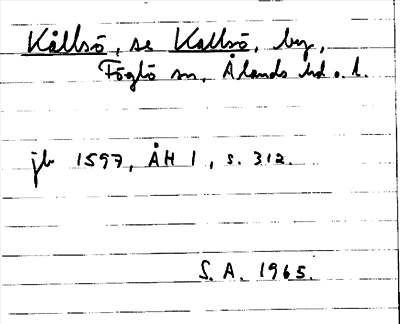 Kållsö, se Kallsö, by,
Föglö sn, Ålands hd o. l.
jb 1597, ÅH 1, s. 312.
S. A. 1965.